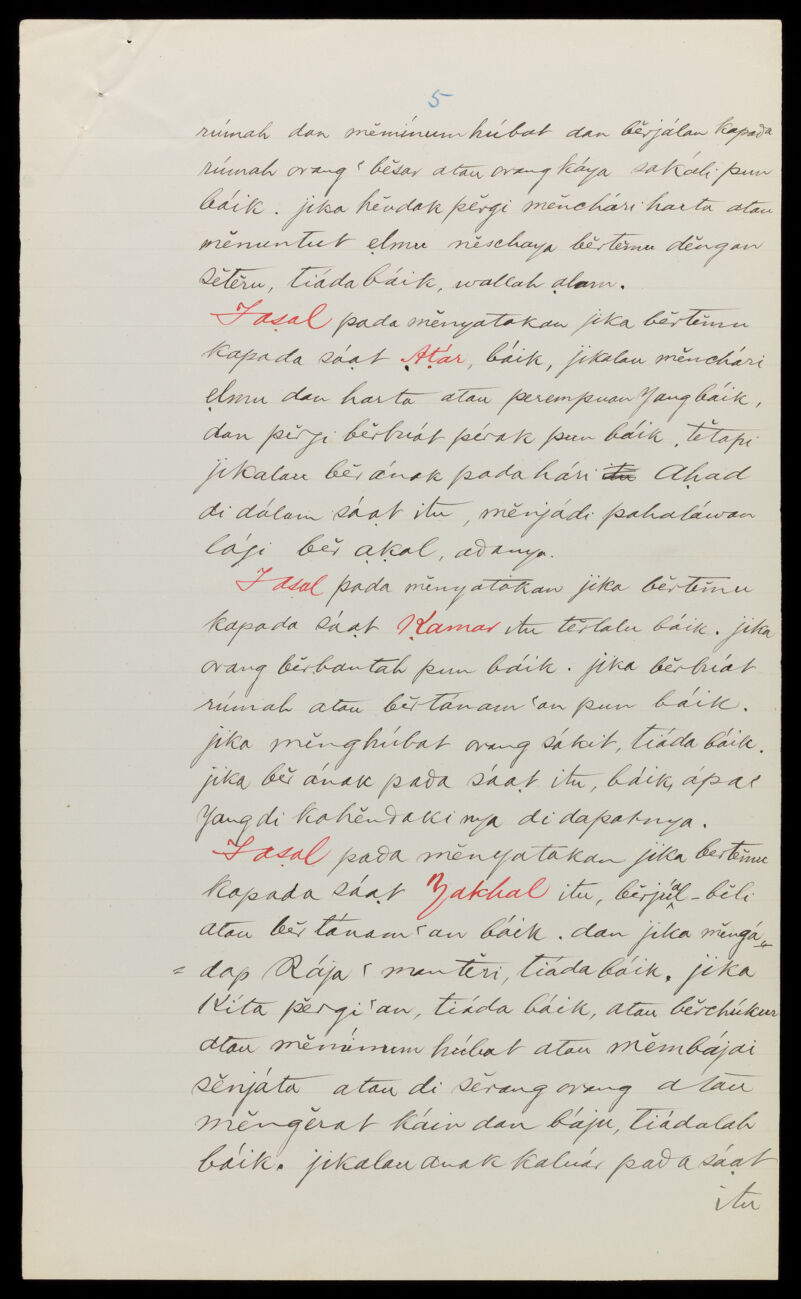 5
rúmah dan mĕmínum húbat dan bĕrjálan kapada
rúmah orang ʿ bĕsar atau orang káya sakáli pun
báik. jika hĕndak pĕrgi mĕnchári harta atau
mĕnuntut ẹlmu nĕschaya bĕrtĕmu dĕngan
sĕtĕru, tiáda báik, wallah ạlam.
Faṣal pada mĕnyatakan jika bĕrtĕmu
kapada sáạt Ạṭár, báik, jikalau mĕnchári
ẹlmu dan harta atau perempuan yang báik,
dan pĕrgi bĕrbúat pérak pun báik, tĕtapi
jikalau bĕr ának pada hári i̶t̶u̶ Aḥad
di dálam sáạt itu, mĕnjádi pahaláwan
lági bĕr ạḳal, adanya.
Faṣal pada mĕnyatakan jika bĕrtĕmu
kapada sáạt Ḳamar itu tĕrlalu báik. jika
orang bĕrbantah pun báik. jika bĕrbúat
rúmah atau bĕrtánam ʿan pun báik.
jika mĕnghúbat orang sákit, tiáda báik.
jika bĕr ának pada sáạt itu, báik, ápa ʿ
yang di kahĕndaki nya di dapatnya.
Faṣal pada mĕnyatakan jika bertĕmu
kapada sáạt Zakhal itu, bĕrjúạl-bĕli
atau bĕr tánam ʿan báik. dan jika mĕngá〃
= dap Rája ʿ mantĕri, tiáda báik. jika
Kíta pĕrgi ʿan, tiáda báik, atau bĕrchúkur
atau mĕmínum húbat atau mĕmbájai
sĕnjáta atau di sĕrang orang atau
mĕngĕrat káin dan báju, tiádalah
báik. jikalau anak kaluár pada sáạt
itu